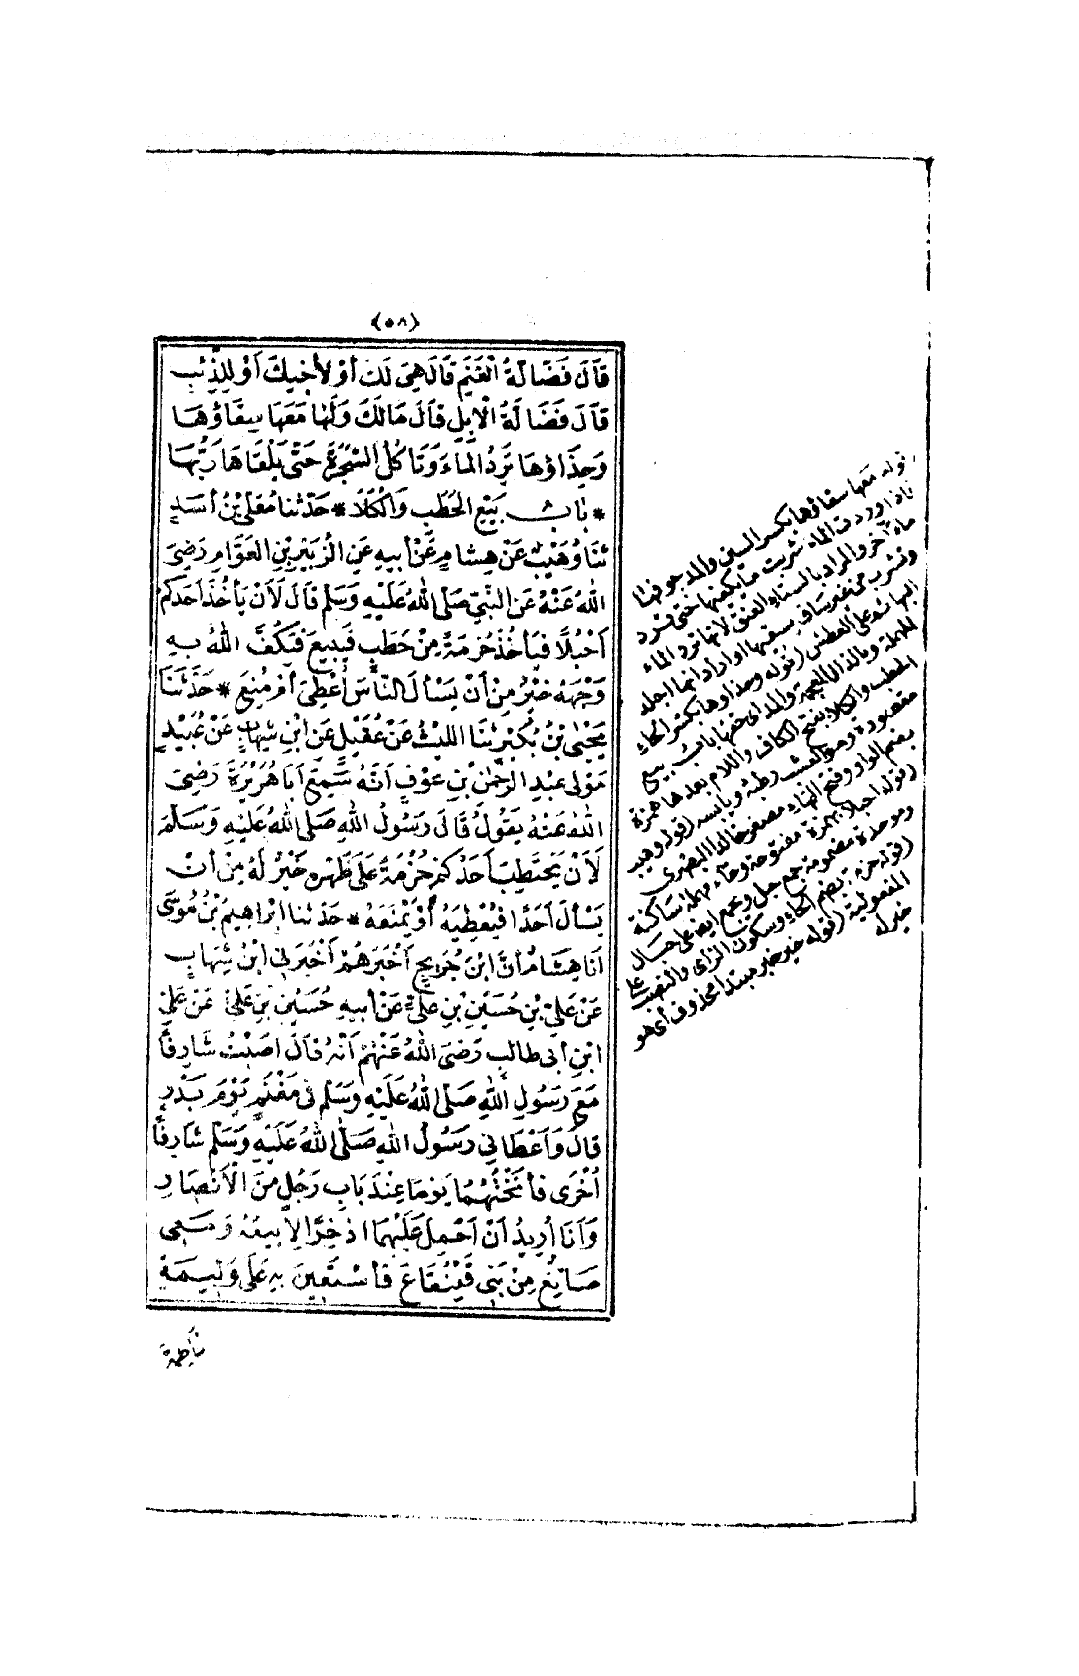 (٥٨)
قَالَ فَضَالَّةُ الْغَنَمِ قَالَ هِيَ لَكَ أَوْ لِأَخِيكَ أَوْ لِلذِّئْبِ
قَالَ فَضَالَّةُ الْإِبِلِ قَالَ مَالَكَ وَلَهَا مَعَهَا سِقَاؤُهَا
وَحِذَاؤُهَا تَرِدُ الْمَاءَ وَتَأْكُلُ الشَّجَرَةَ حَتَّى يَلْقَاهَا رَبُّهَا
* بَابُ بَيْعِ الْحَطَبِ وَالْكَلَأِ * حَدَّثَنَا مُعَلَّى بْنُ أَسَدٍ
ثَنَا وُهَيْبٌ عَنْ هِشَامٍ عَنْ أَبِيهِ عَنِ الزُّبَيْرِ بْنِ الْعَوَّامِ رَضِيَ
اللهُ عَنْهُ عَنِ النَّبِيِّ صَلَّى اللهُ عَلَيْهِ وَسَلَّمَ قَالَ لَأَنْ يَأْخُذَ أَحَدُكُمْ
أَحْبُلًا فَيَأْخُذَ حُزْمَةً مِنْ حَطَبٍ فَيَبِيعَ فَيَكُفَّ اللهُ بِهِ
وَجْهَهُ خَيْرٌ مِنْ أَنْ يَسْأَلَ النَّاسَ أُعْطِيَ أَمْ مُنِعَ * حَدَّثَنَا
يَحْيَى بْنُ بُكَيْرٍ ثَنَا اللَّيْثُ عَنْ عُقَيْلٍ عَنِ ابْنِ شِهَابٍ عَنْ عُبَيْدٍ
مَوْلَى عَبْدِ الرَّحْمٰنِ بْنِ عَوْفٍ أَنَّهُ سَمِعَ أَبَا هُرَيْرَةَ رَضِيَ
اللهُ عَنْهُ يَقُولُ قَالَ رَسُولُ اللهِ صَلَّى اللهُ عَلَيْهِ وَسَلَّمَ
لَأَنْ يَحْتَطِبَ أَحَدُكُمْ حُزْمَةً عَلَى ظَهْرِهِ خَيْرٌ لَهُ مِنْ أَنْ
يَسْأَلَ أَحَدًا فَيُعْطِيَهُ أَوْ يَمْنَعَهُ * حَدَّثَنَا إِبْرَاهِيمُ بْنُ مُوسَى
أَنَا هِشَامٌ أَنَّ ابْنَ جُرَيْجٍ أَخْبَرَهُمْ أَخْبَرَنِي ابْنُ شِهَابٍ
عَنْ عَلِيِّ بْنِ حُسَيْنِ بْنِ عَلِيٍّ عَنْ أَبِيهِ حُسَيْنِ بْنِ عَلِيٍّ عَنْ عَلِيِّ
ابْنِ أَبِي طَالِبٍ رَضِيَ اللهُ عَنْهُمْ أَنَّهُ قَالَ أَصَبْتُ شَارِفًا
مَعَ رَسُولِ اللهِ صَلَّى اللهُ عَلَيْهِ وَسَلَّمَ فِي مَغْنَمٍ يَوْمَ بَدْرٍ
قَالَ وَأَعْطَانِي رَسُولُ اللهِ صَلَّى اللهُ عَلَيْهِ وَسَلَّمَ شَارِفًا
أُخْرَى فَأَنَخْتُهُمَا يَوْمًا عِنْدَ بَابِ رَجُلٍ مِنَ الْأَنْصَارِ
وَأَنَا أُرِيدُ أَنْ أَحْمِلَ عَلَيْهِمَا إِذْخِرًا لِأَبِيعَهُ وَمَعِي
صَائِغٌ مِنْ بَنِي قَيْنُقَاعَ فَأَسْتَعِينَ بِهِ عَلَى وَلِيمَةِ
فَاطِمَةَ
قوله معها سقاؤها بكسر السين والمد جوفها
فاذا وردت الماء شربت ما يكفيها حتى ترد
ماء آخر والمراد بالسقاء العنق لانها ترد الماء
وتشرب من غير ساق يسقيها او اراد انها اجلد
البهائم على العطش (قوله وحذاؤها بكسر الحاء
المهملة وبالذال المعجمة والمد اى خفها باب بيع
الحطب والكلا بفتح الكاف واللام بعدها همزة
مقصورة وهو العشب رطبه ويابسه (قوله وهيب
بضم الواو وفتح الهاء مصغر خالد البصرى
(قوله احبلا بهمزة مفتوحة وحاء مهملة ساكنة
وموحدة مضمومة جمع حبل ويجمع ايضا على حبال
(قوله حزمة بضم الحاء وسكون الزاى والنصب على
المفعولية (قوله خير خبر مبتدا محذوف اى هو
خير له